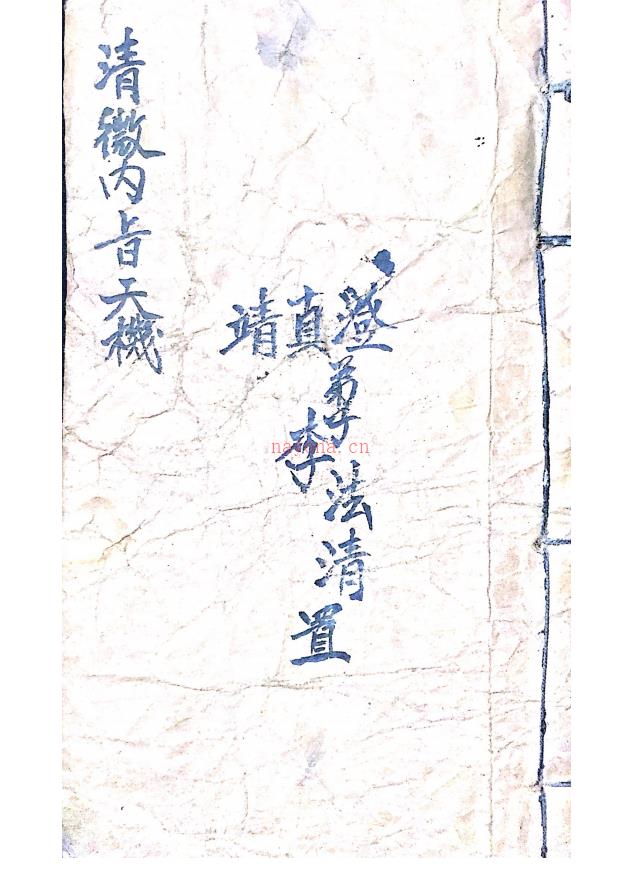 清微内旨天機
澄真靖
弟子李法清置
nayona.cn